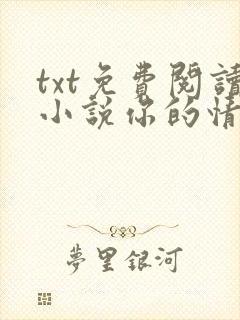 txt免費閱讀
小說你的情
夢里銀河